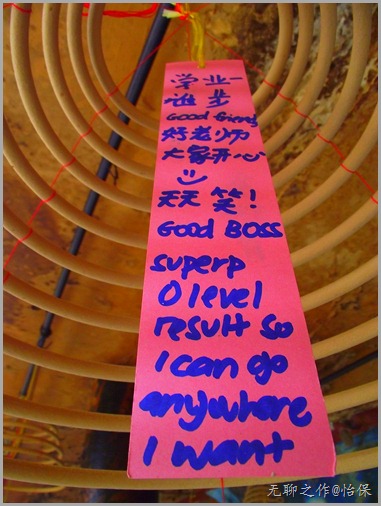 学业一
进步
Good friends
好老师
大家开心
天天笑!
Good BOSS
superp
O level
result so
I can go
anywhere
I want
无聊之作@怡保